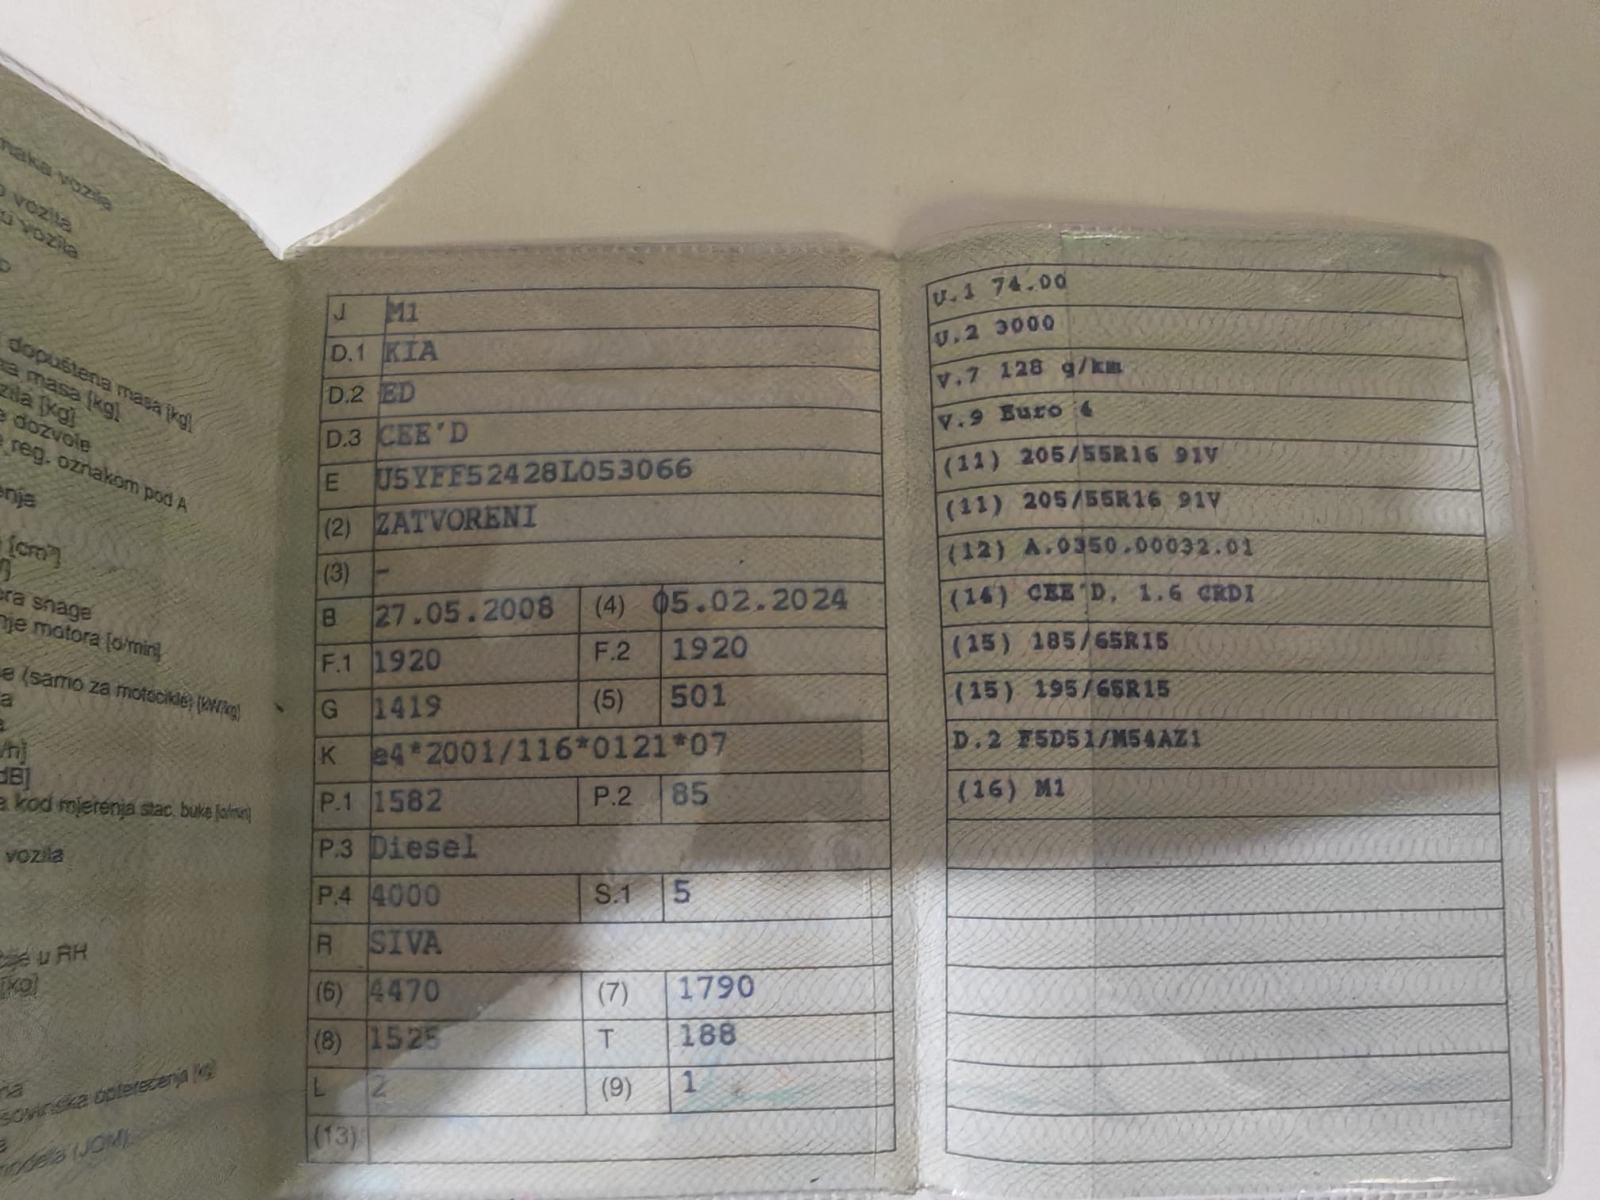 vozila
vozila
vozila
dopuštena masa [kg]
masa [kg]
[kg]
dozvole
reg. oznakom pod A
[cm³]
snage
motora [o/min]
(samo za motocikle) [kW/kg]
kod mjerenja stac. buke [o/min]
vozila
u RH
[kg]
opterećenja [kg]
modela (JOM)
J M1
D.1 KIA
D.2 ED
D.3 CEE'D
E U5YFF52428L053066
(2) ZATVORENI
(3) -
B 27.05.2008 (4) 05.02.2024
F.1 1920 F.2 1920
G 1419 (5) 501
K e4*2001/116*0121*07
P.1 1582 P.2 85
P.3 Diesel
P.4 4000 S.1 5
R SIVA
(6) 4470 (7) 1790
(8) 1525 T 188
L 2 (9) 1
(13)
U.1 74.00
U.2 3000
V.7 128 g/km
V.9 Euro 4
(11) 205/55R16 91V
(11) 205/55R16 91V
(12) A.0350.00032.01
(14) CEE'D, 1.6 CRDI
(15) 185/65R15
(15) 195/65R15
D.2 F5D51/M54AZ1
(16) M1